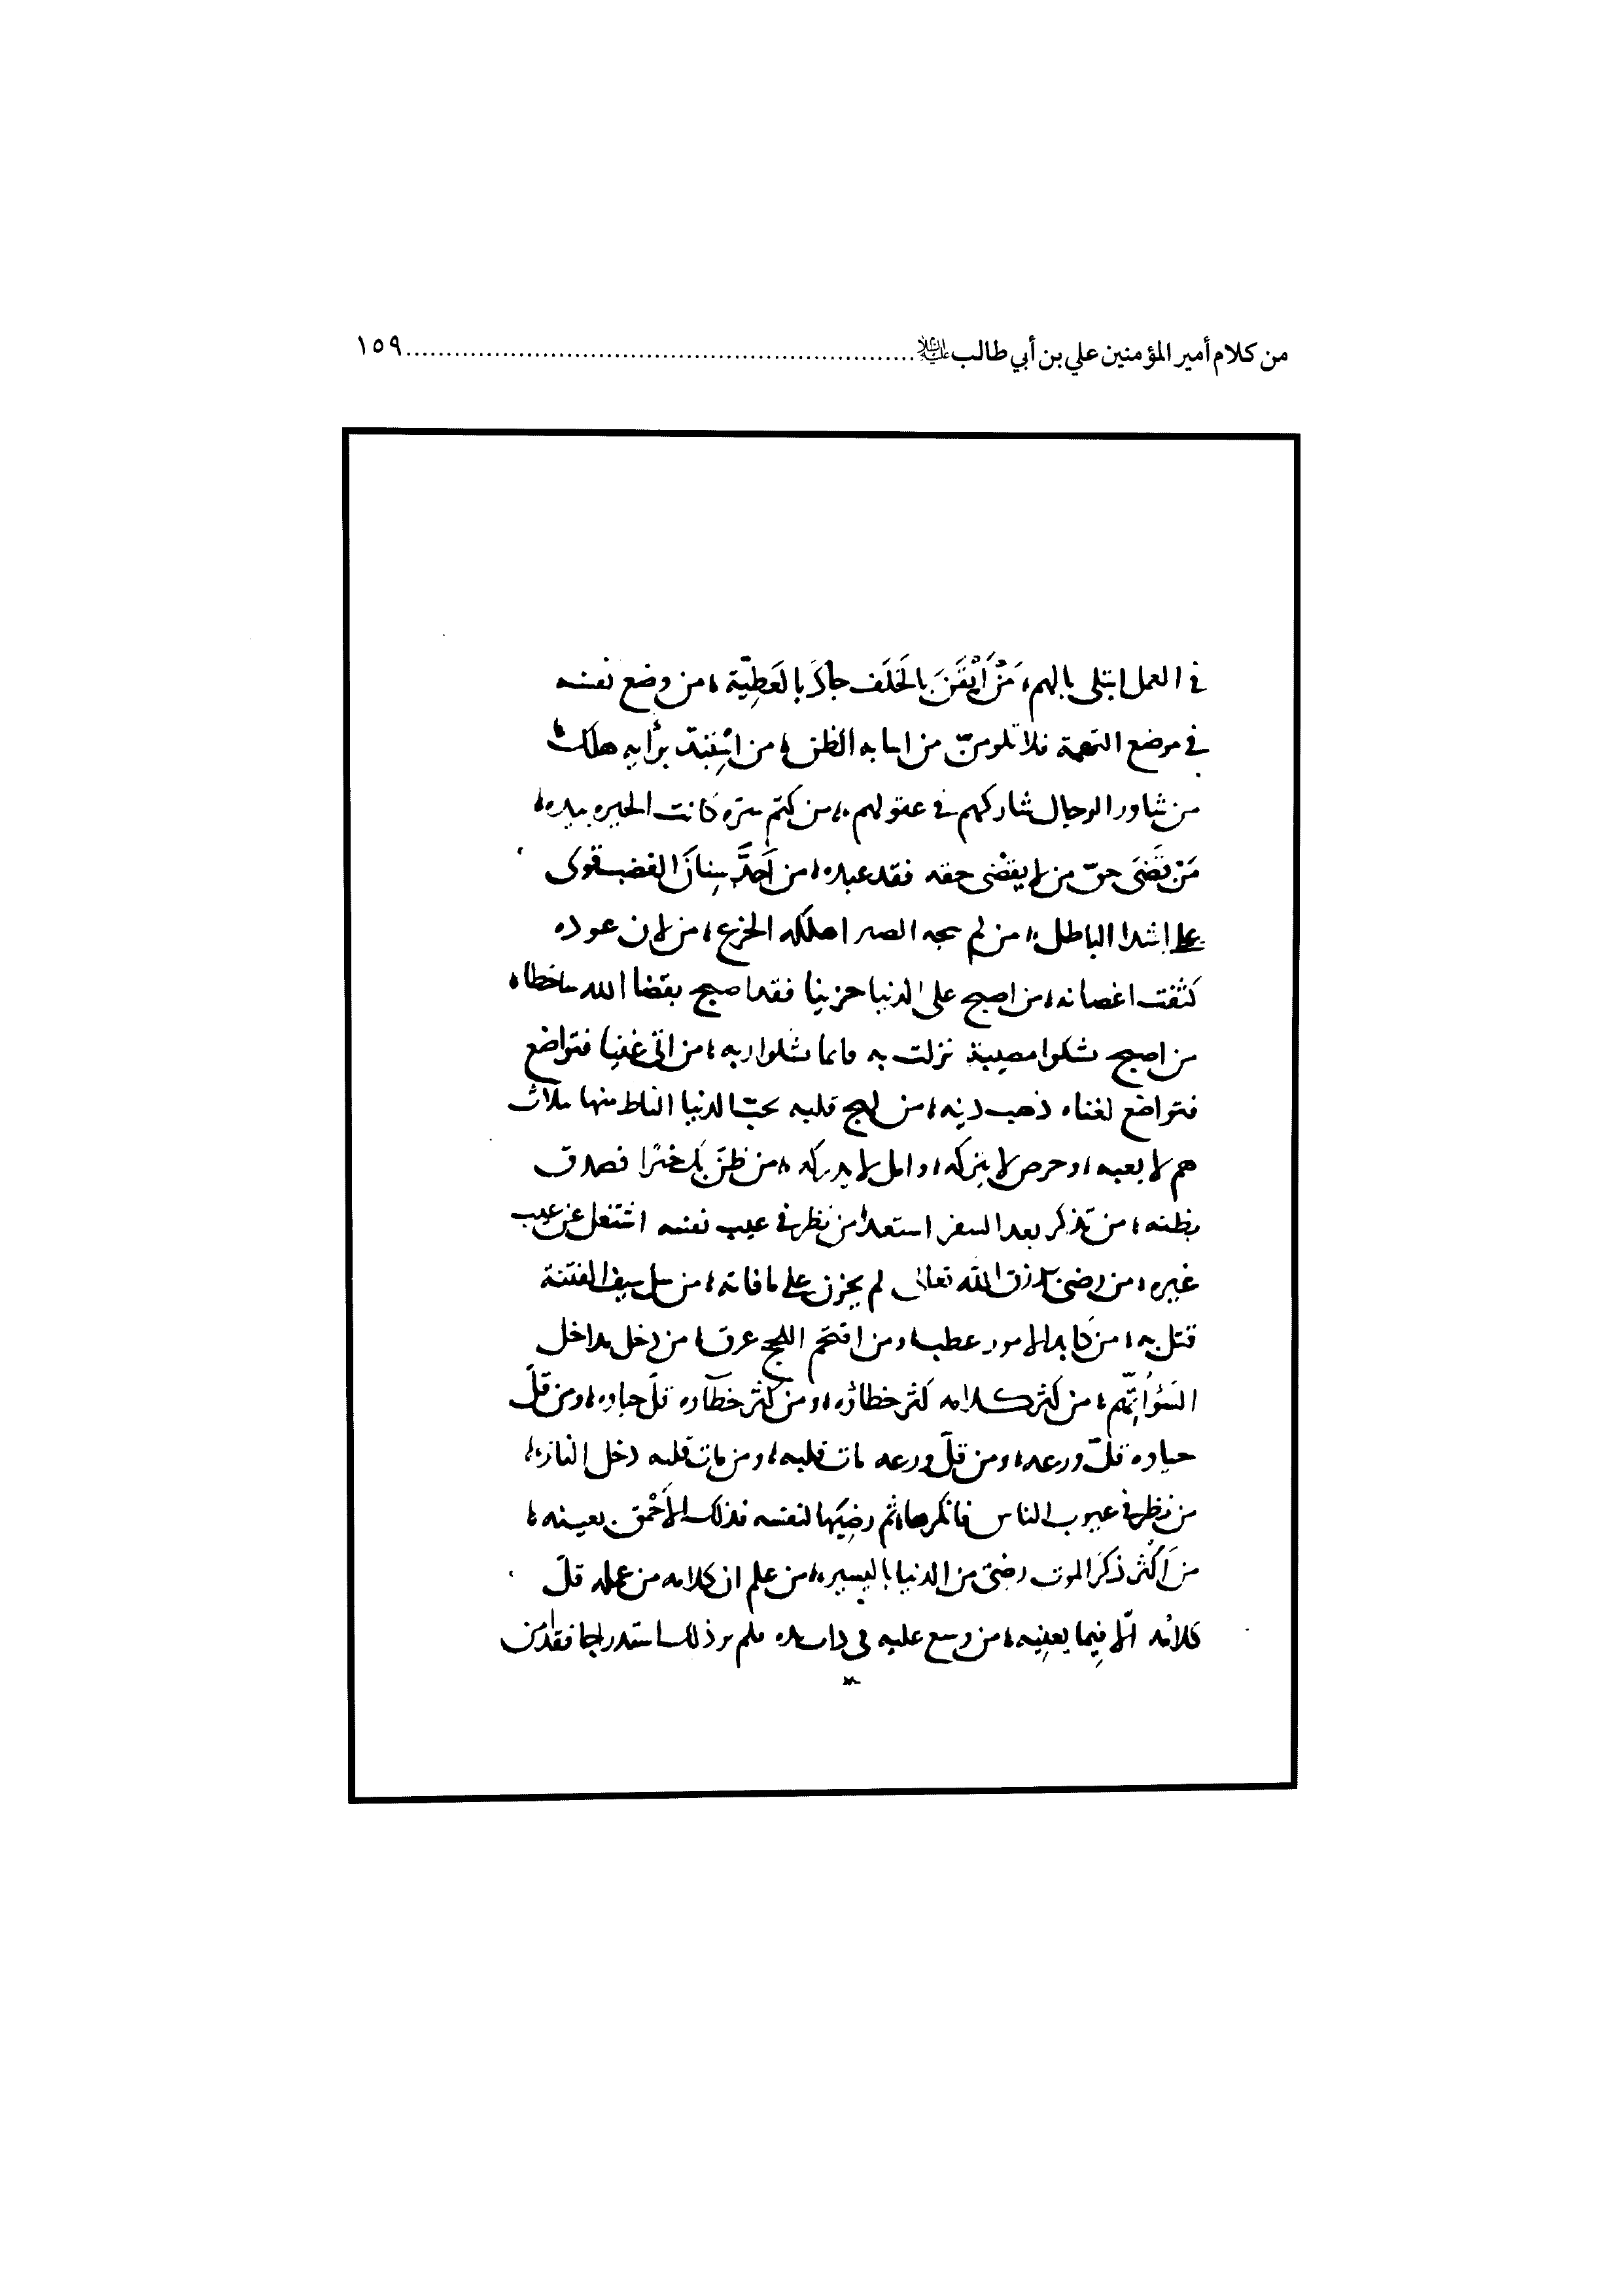 من كلام أمير المؤمنين علي بن أبي طالب عليه السلام ........ ١٥٩
في العمل ابتلى بالهم، مَنْ أَيْقَنَ بِالخَلَف جادَ بالعَطِيّة، من وضع نفسه
في موضع التهمة فلا تلومنّ من اسا به الظن، من استبدّ برأيه هلك،
من شاور الرجال شاركهم في عقولهم، من كتم سرّه كانت الخيره بيده،
مَنْ قَضَى حقّ من لا يقضى حقه فقد عبده، من أَحَدَّ سِنانَ الغضب قوى
على اشدا الباطل، من لم ينجه الصبر اهلكه الجزع، من لان عوده
كثفت اغصانه، من اصبح على الدنيا حزينا فقد اصبح بقضا الله ساخطا،
من اصبح يشكوا مصيبة نزلت به فانما يشكوا ربه، من اتى غنيا فتواضع
فتواضع لغناه ذهب دينه، من لهج قلبه بحبّ الدنيا التاط منها بثلاث
هم لا يغبه، وحرص لا يتركه، وامل لا يدركه، من ظنّ بك خيرًا فصدق
بظنه، من تذكر بعد السفر استعد، من نظر في عيب نفسه اشتغل عن عيب
غيره، من رضى برزق الله تعالى لم يحزن على ما فاته، من سل سيف الفتنة
قتل به، من كابد الامور عطب، ومن اقتحم اللجج غرق، من دخل مداخل
السُّوْ اتُّهِم، من كثر كلامه كثر خطاؤه، ومن كثر خطآؤه قلّ حياوه، ومن قلّ
حياوه قلّ ورعه، ومن قلّ ورعه مات قلبه، ومن مات قلبه دخل النار،
من نظر في عيوب الناس فانكرها، ثم رضِيَها لنفسه فذلك الأَحْمق بعينه،
من أَكْثر ذكَر الموت رضى من الدنيا باليسير، من علم ان كلامه من عمله قلّ
كلامُه الّا فِيما يعنِيه، من وسع عليه في ذات يده فلم ير ذلك استدراجا فقد أمن